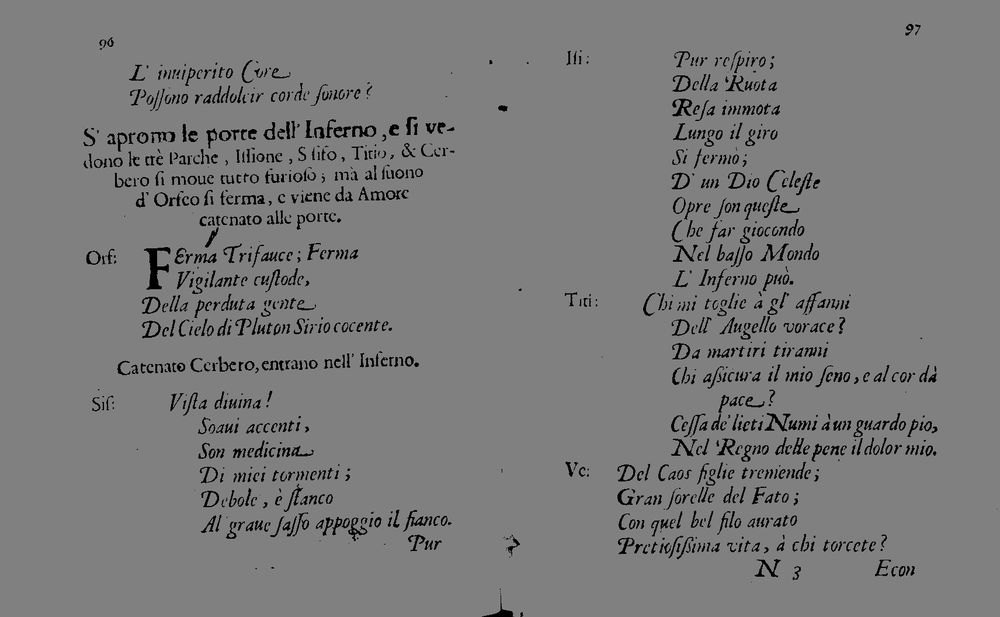 96
L' inuiperito Core
Possono raddolcir corde sonore?
S' aprono le porte dell' Inferno, e si ve-
dono le trè Parche, Issione, Sisifo, Titio, & Cer-
bero si moue tutto furioso; mà al suono
d' Orfeo si ferma, e viene da Amore
catenato alle porte.
Orf: FErma Trifauce; Ferma
Vigilante custode,
Della perduta gente
Del Cielo di Pluton Sirio cocente.
Catenato Cerbero, entrano nell' Inferno.
Sis: Vista diuina!
Soaui accenti,
Son medicina
Di miei tormenti;
Debole, è stanco
Al graue sasso appoggio il fianco.
Pur
97
Isi: Pur respiro;
Della Ruota
Resa immota
Lungo il giro
Si fermò;
D' un Dio Celeste
Opre son queste
Che far giocondo
Nel basso Mondo
L' Inferno può.
Titi: Chi mi toglie à gl' affanni
Dell' Augello vorace?
Da martiri tiranni
Chi assicura il mio seno, e al cor dà
pace?
Cessa de' lieti Numi à un guardo pio,
Nel Regno delle pene il dolor mio.
Ve: Del Caos figlie tremende;
Gran sorelle del Fato;
Con quel bel filo aurato
Pretiosissima vita, à chi torcete?
N 3 Econ